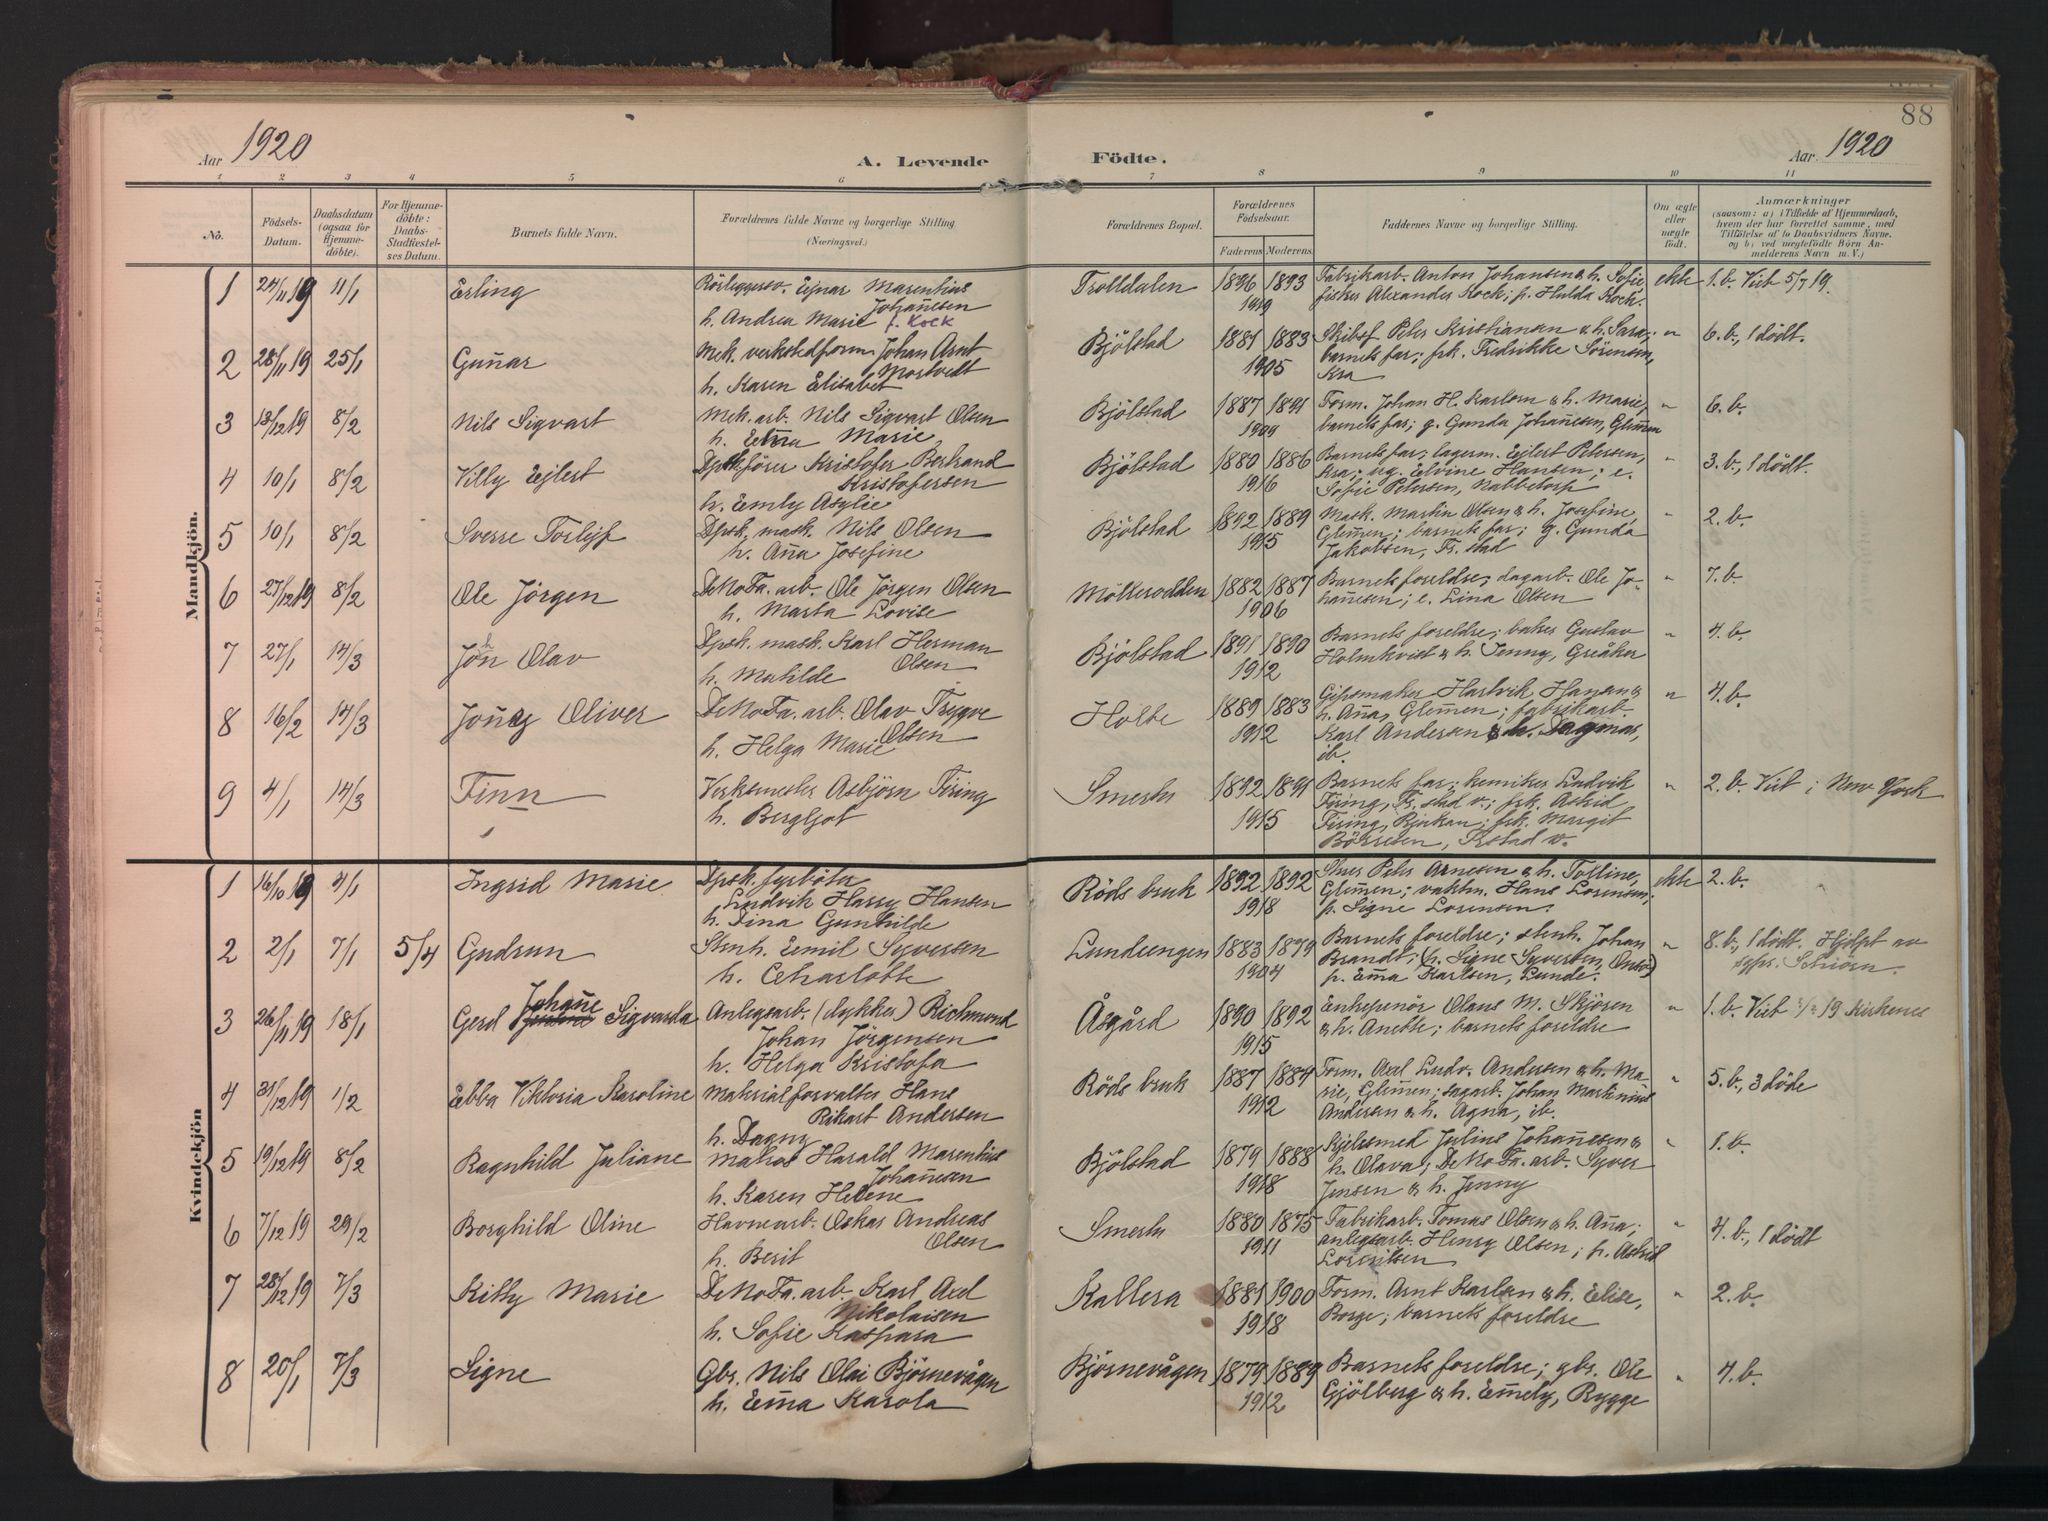 88
Aar 1920
A. Levende
Födte.
Aar 1920
1 2 3 4 5 6 7 8 9 10 11
No.
Födsels-Datum.
Daabsdatum (ogsaa for Hjemmedöbte).
For Hjemmedöbte: Daabs-Stadfæstelses Datum.
Barnets fulde Navn.
Forældrenes fulde Navne og borgerlige Stilling (Næringsvei.)
Forældrenes Bopæl.
Forældrenes Födselsaar.
Faderens Moderens
Faddernes Navne og borgerlige Stilling.
Om ægte eller uægte födt.
Anmærkninger
(saasom: a) i Tilfælde af Hjemmedaab, hvem der har forrettet samme, med Tilföielse af to Daabsvidners Navne, og b) ved uægtefödte Börn Anmelderens Navn m. V.)
Mandkjön.
1 24/11 19 11/1 Erling
Rörleggersv. Ejnar Marenhius Johannesen
h. Andrea Marie f. Kock
Trolldalen 1896 1893 1919
Fabrikarb. Anton Johansen & h. Sofie,
fisker Alexander Kock; p. Hulda Kock.
ekte 1. b. Viet 5/7 19.
2 28/11 19 25/1 Gunnar
Mek. verkstedform. Johan Arnt Mostvedt
h. Karen Elisabet
Bjölstad 1881 1883 1905
Skibsf. Peter Kristiansen & h. Sara;
barnets far; frk. Fredrikke Sörensen,
Kra
" 6. b., 1 dödt.
3 13/12 19 8/2 Nils Sigvart
Mek. arb. Nils Sigvart Olsen
h. Edna Marie
Bjölstad 1887 1891 1909
Form. Johan H. Karlsen & h. Marie,
barnets far; g. Gunda Johannesen, Glemmen
" 6. b.
4 10/1 8/2 Villy Ejlert
Dpskförer Kristofer Bertrand Kristofersen
h. Emly Asylie
Bjölstad 1880 1886 1916
Barnets far; lagerm. Ejlert Petersen,
Kra; ug. Elvine Hansen; e.
Sofie Petersen, Nabbetorp
" 3. b., 1 dödt.
5 10/1 8/2 Sverre Torlejf
Dpsk. mask. Nils Olsen
h. Anna Josefine
Bjölstad 1892 1889 1915
Mask. Martin Olsen & h. Josefine,
Glemmen; barnets far; g. Gunda
Jakobsen, Fr. stad
" 2. b.
6 27/12 19 8/2 Ole Jörgen
DeNoFa. arb. Ole Jörgen Olsen
h. Marta Lovise
Möllerodden 1882 1887 1906
Barnets foreldre; dagarb. Ole Jo-
hannesen; e. Lina Olsen
" 7. b.
7 27/1 14/3 John Olav
Dpsk. mask. Karl Herman Olsen
h. Matilde
Bjölstad 1891 1890 1912
Barnets foreldre; baker Gustav
Holmkvist & h. Jenny, Greåker
" 4. b.
8 16/2 14/3 Jonny Oliver
DeNoFa. arb. Olav Trygve Olsen
h. Helga Marie
Holte 1889 1883 1912
Gipsmaker Hartvik Hansen &
h. Anna, Glemmen; fabrikarb.
Karl Andersen & h. Dagmar,
ib.
" 4. b.
9 4/1 14/3 Finn
Verksmester Asbjörn Firing
h. Bergljot
Smertu 1892 1891 1915
Barnets far; kemiker Ludvik
Firing, Fr. stad v.; frk. Astrid
Firing, Rjukan; frk. Margit
Börresen, Kstad v.
" 2. b. Viet i New York
Kvindekjön
1 16/10 19 4/1 Ingrid Marie
Dpsk. fyrböter
Ludvik Harry Hansen
h. Tina Gunhilde
Röds bruk 1892 1892 1918
Peter Arnesen & h. Torline,
Glemmen; vaktm. Hans Lorensen;
p. Signe Lorensen.
ekte 2. b.
2 2/1 7/1 5/4 Gudrun
Stenh. Emil Syversen
h. Charlotte
Lundeengen 1883 1879 1904
Barnets foreldre; stenh. Johan
Brandt; (h. Signe Syversen, Onsö)
p. Emma Karlsen, Lunde.
" 8. b., 1 dödt. Hjdpt av
3 26/11 19 18/1 Gerd Johanne Sigvarda
Anlegsarb. (dykker) Richmund
Johan Jörgensen
h. Helga Kristofa
Åsgård 1890 1892 1915
Entrepenör Olaus M. Skjören
& h. Anette; barnets foreldre
" 1. b. Viet 19 Kirkenes
4 31/12 19 1/2 Ebba Viktoria Karoline
Materialforvalter Hans
Rikart Andersen
h. Dagny
Röds bruk 1887 1884 1912
Form. Axel Ludv. Andersen & h. Ma-
rie, Glemmen; sagarb. Johan Martinius
Andersen & h. Agna, ib.
" 5. b., 3 döde
5 19/12 19 8/2 Ragnhild Juliane
Matros Harald Marenhius Johannesen
h. Karen Helene
Bjölstad 1879 1888 1918
Kjelesmed Julius Johannesen &
h. Olava; DeNoFa. arb. Syver
Jensen & h. Jenny
" 1. b.
6 7/12 19 29/2 Borghild Oline
Havnearb. Oskar Andreas Olsen
h. Berit
Smertu 1880 1875 1911
Fabrikarb. Tomas Olsen & h. Anna;
anlegsarb. Henry Olsen; p. Astrid
Lorentsen
" 4. b., 1 dödt
7 28/12 19 7/3 Kitty Marie
DeNoFa. arb. Karl Axel
Nikolaisen
h. Sofie Kaspara
Kallera 1881 1900 1918
Form. Arnt Karlsen & h. Elise,
Borge; barnets foreldre
" 2. b.
8 20/1 7/3 Signe
Gbr. Nils Olai Björnevågen
h. Emma Karola
Björnevågen 1879 1889 1912
Barnets foreldre; gbr. Ole
Gjölberg & h. Emmely, Rygge
" 4. b.